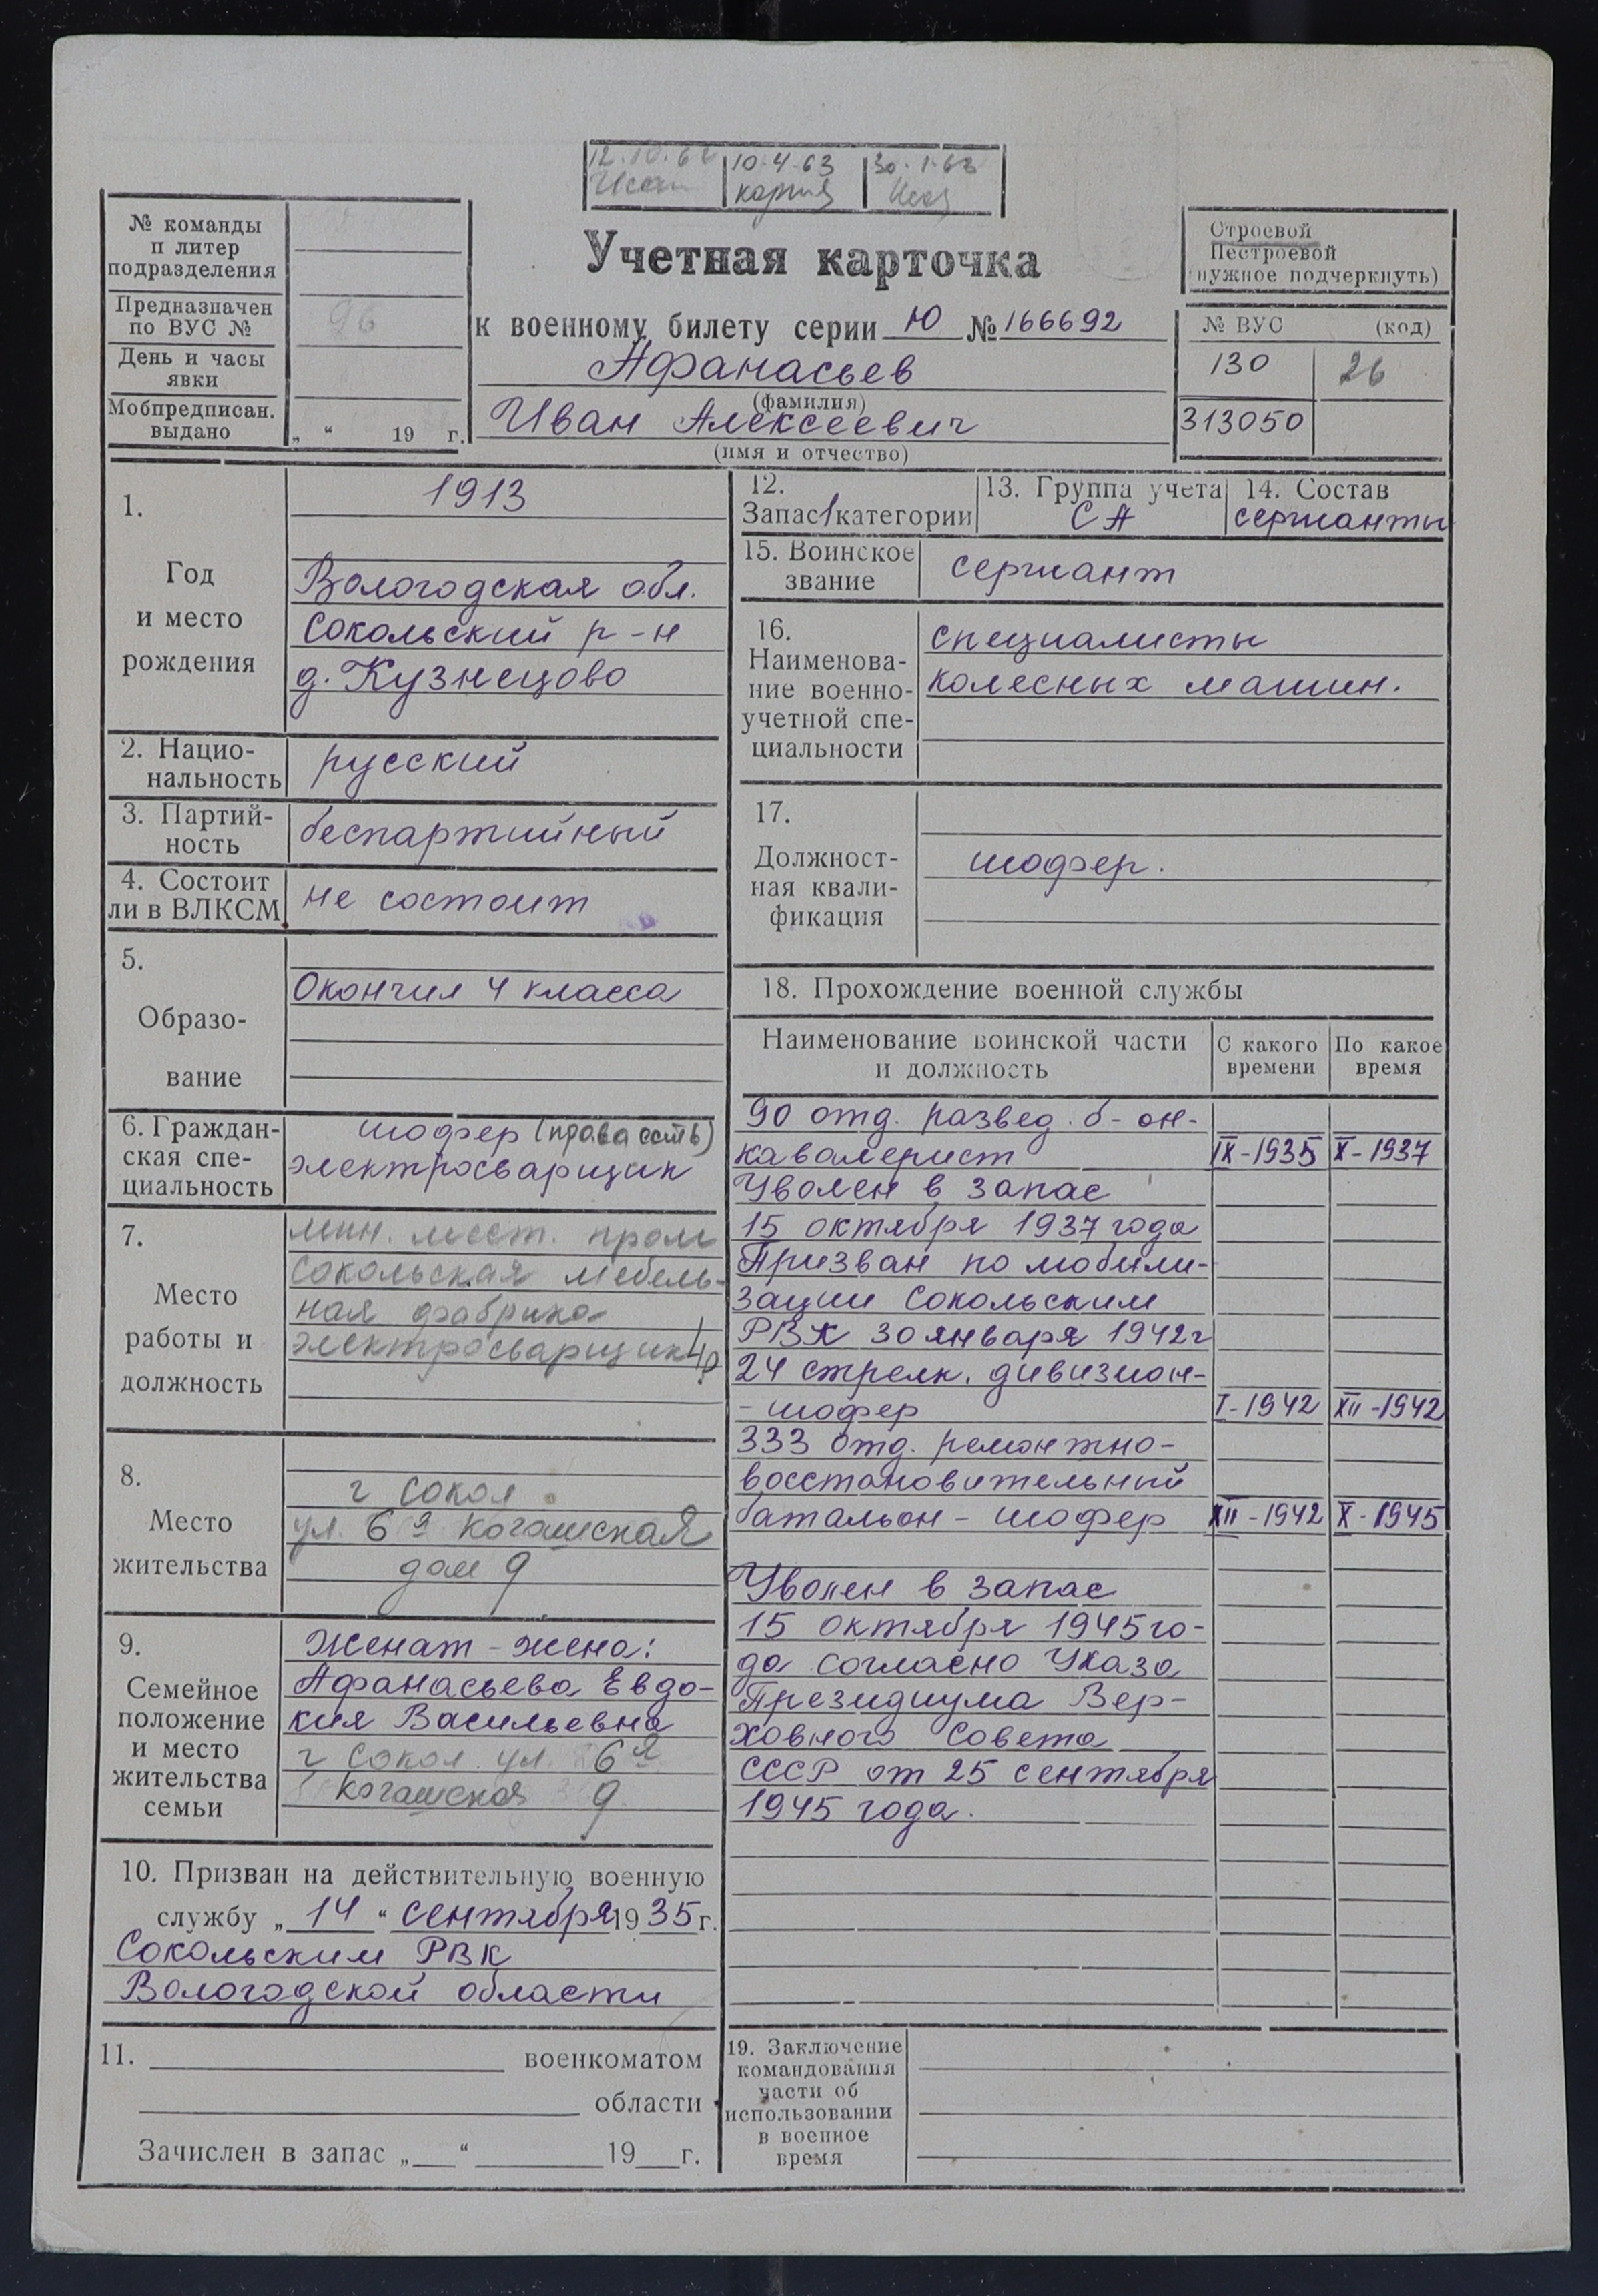 12.10.62 10.4.63 30.1.63
№ команды
п литер
подразделения
Предназначен
по ВУС №
96
День и часы
явки
Мобпредписан.
выдано
„ “ 19 г.
Учетная карточка
к военному билету серии Ю № 166692
Афанасьев
(фамилия)
Иван Алексеевич
(имя и отчество)
Строевой
Нестроевой
(нужное подчеркнуть)
№ ВУС (код)
130 26
313050
1.
Год
и место
рождения
1913
Вологодская обл.
Сокольский р-н
д. Кузнецово
2. Нацио-
нальность
русский
3. Партий-
ность
беспартийный
4. Состоит
ли в ВЛКСМ
не состоит
5.
Образо-
вание
Окончил 4 класса
6. Граждан-
ская спе-
циальность
шофер (права есть)
электросварщик
7.
Место
работы и
должность
мин. мест. пром
Сокольская мебель-
ная фабрика
электросварщик 4р
8.
Место
жительства
г Сокол
ул. 6я
дом 9
9.
Семейное
положение
и место
жительства
семьи
Женат - жена:
Афанасьева Евдо-
кия Васильевна
г Сокол ул. 6я
9
10. Призван на действительную военную
службу „ 14 “ сентября 1935 г.
Сокольским РВК
Вологодской области
11. военкоматом
области
Зачислен в запас „ “ 19 г.
12.
Запас 1 категории
13. Группа учета
СА
14. Состав
сержанты
15. Воинское
звание
сержант
16.
Наименова-
ние военно-
учетной спе-
циальности
специалисты
колесных машин.
17.
Должност-
ная квали-
фикация
шофер.
18. Прохождение военной службы
Наименование воинской части
и должность
С какого
времени
По какое
время
90 отд. развед. б-он-
кавалерист IX-1935 X-1937
Уволен в запас
15 октября 1937 года
Призван по мобили-
зации Сокольским
РВК 30 января 1942 г
24 стрелк. дивизион-
- шофер I-1942 XII-1942
333 отд. ремонтно-
восстановительный
батальон - шофер XII-1942 X-1945
Уволен в запас
15 октября 1945 го-
да согласно Указа
Президиума Вер-
ховного Совета
СССР от 25 сентября
1945 года.
19. Заключение
командования
части об
использовании
в военное
время